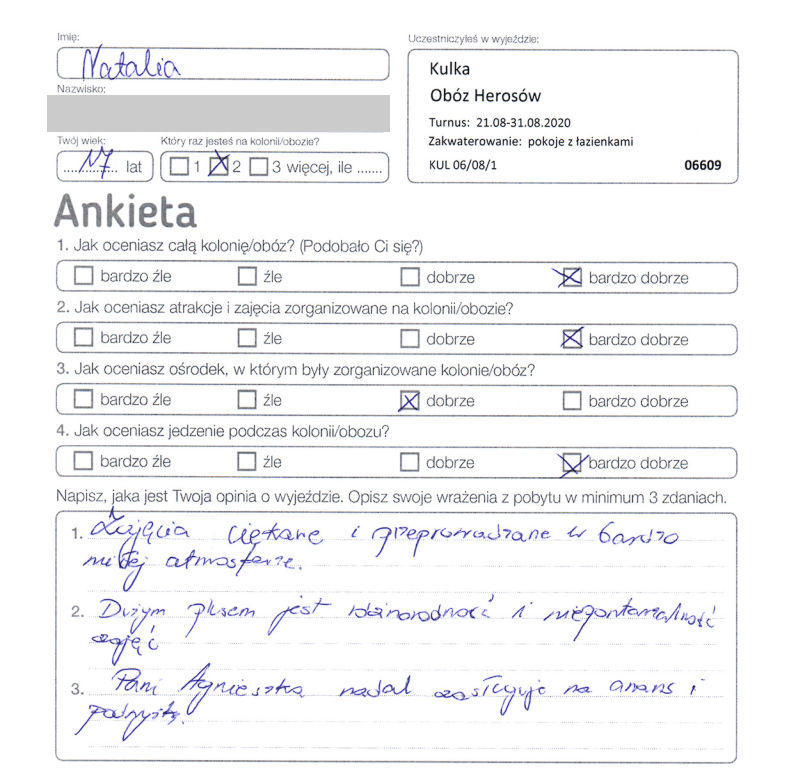 Imię:
Natalia
Nazwisko:
Twój wiek:
17 lat
Który raz jesteś na kolonii/obozie?
1 2 3 więcej, ile .......
Uczestniczyłeś w wyjeździe:
Kulka
Obóz Herosów
Turnus: 21.08-31.08.2020
Zakwaterowanie: pokoje z łazienkami
KUL 06/08/1 06609
Ankieta
1. Jak oceniasz całą kolonię/obóz? (Podobało Ci się?)
bardzo źle źle dobrze bardzo dobrze
2. Jak oceniasz atrakcje i zajęcia zorganizowane na kolonii/obozie?
bardzo źle źle dobrze bardzo dobrze
3. Jak oceniasz ośrodek, w którym były zorganizowane kolonie/obóz?
bardzo źle źle dobrze bardzo dobrze
4. Jak oceniasz jedzenie podczas kolonii/obozu?
bardzo źle źle dobrze bardzo dobrze
Napisz, jaka jest Twoja opinia o wyjeździe. Opisz swoje wrażenia z pobytu w minimum 3 zdaniach.
1. Zajęcia ciekawe i przeprowadzane w bardzo
miłej atmosferze.
2. Dużym plusem jest różnorodność i niepowtarzalność
zajęć
3. Pani Agnieszka nadal zasługuje na awans i
podwyżkę.